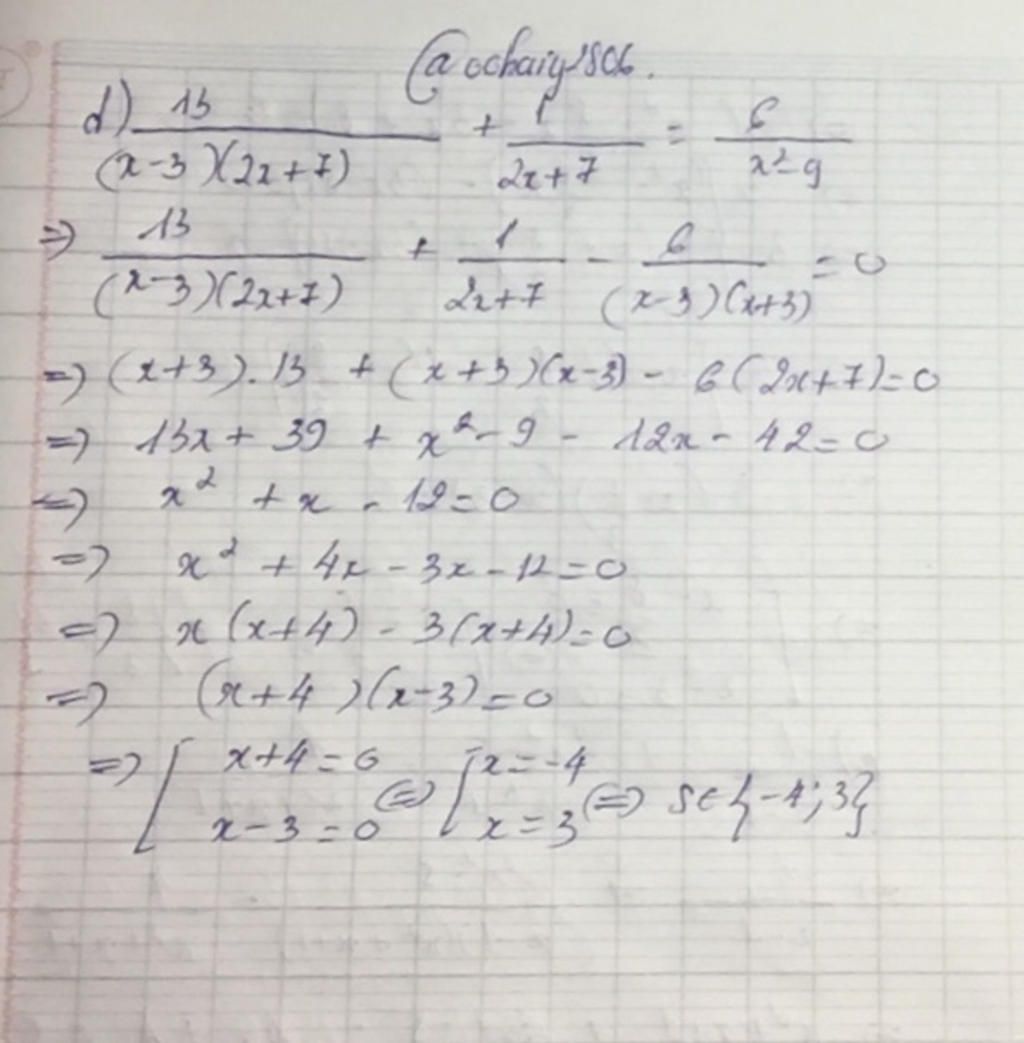 @ochaiy1806.
d) 13/((x-3)(2x+7)) + 1/(2x+7) = 6/(x²-9)
=> 13/((x-3)(2x+7)) + 1/(2x+7) - 6/((x-3)(x+3)) = 0
=> (x+3).13 + (x+3)(x-3) - 6(2x+7)=0
=> 13x + 39 + x² - 9 - 12x - 42 = 0
<=> x² + x - 12 = 0
=> x² + 4x - 3x - 12 = 0
=> x(x+4) - 3(x+4) = 0
=> (x+4)(x-3) = 0
=> [ x+4 = 0 <=> [ x = -4
x-3 = 0 x = 3 <=> S∈{-4;3}